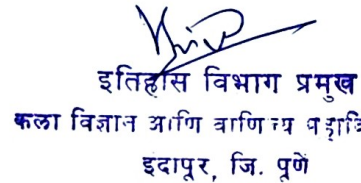 इतिहास विभाग प्रमुख
कला विज्ञान आणि वाणिज्य
इंदापूर, जि. पूणे